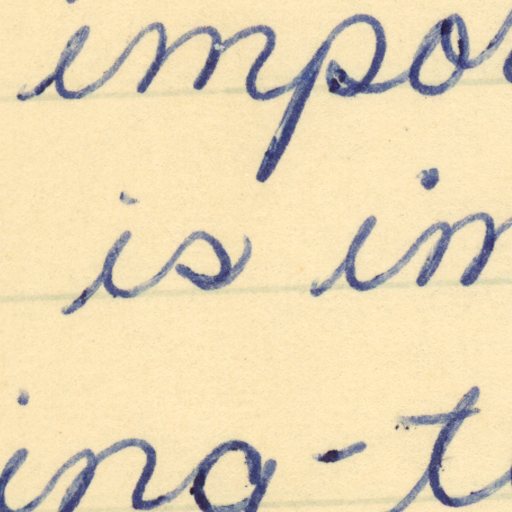 impo
is im
ing-t